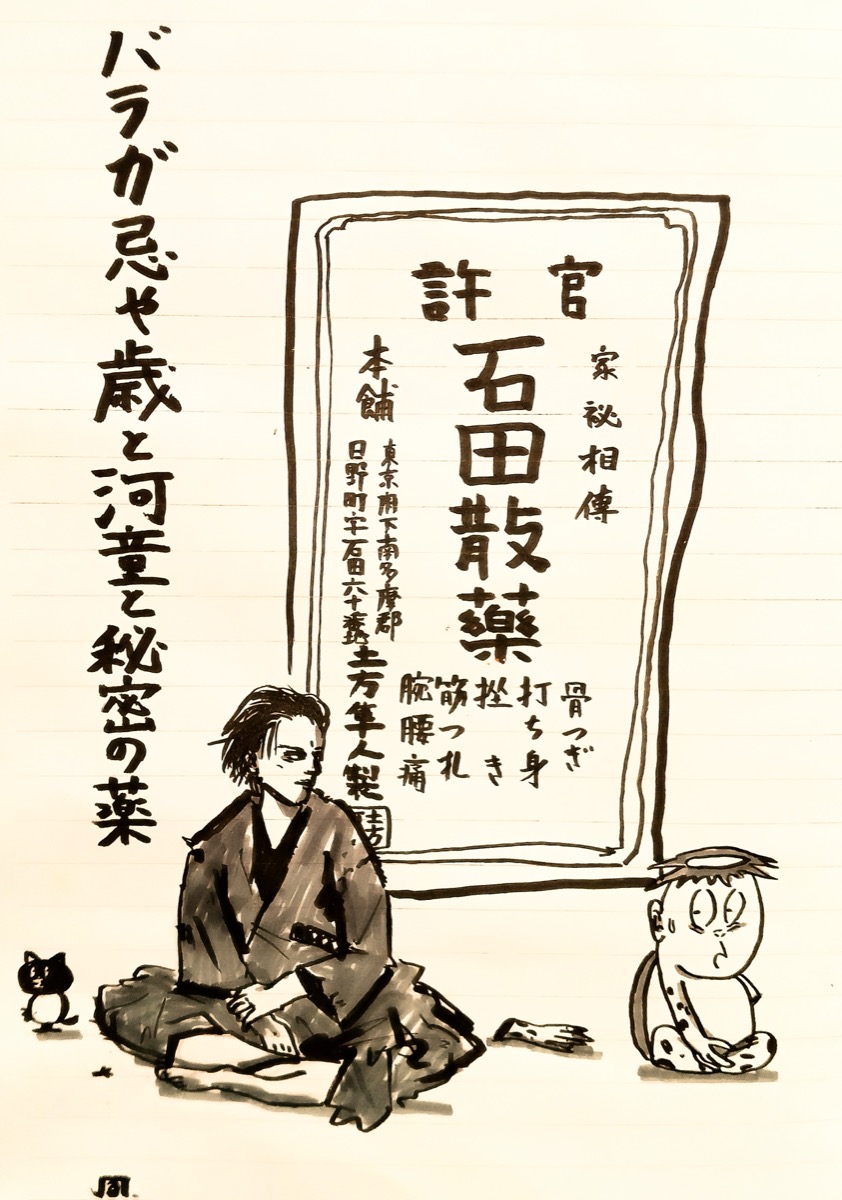 官許
家秘相傳
石田散薬
骨つぎ
打ち身
挫き
筋つれ
腕腰痛
本舗
東京府下南多摩郡
日野町字石田六十番地
土方隼人製
土方
バラガ忌や歳と河童と秘密の薬